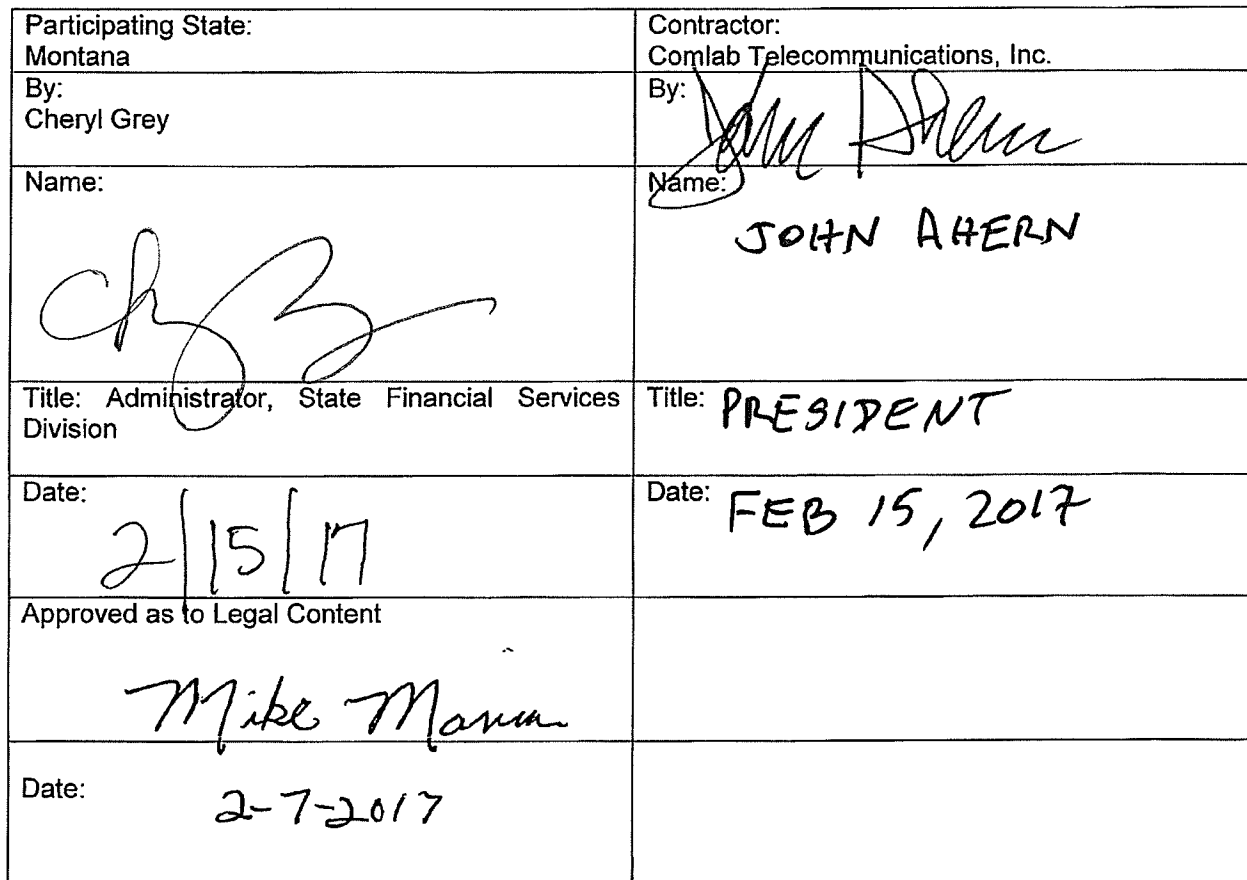 Participating State:
Montana
Contractor:
Comlab Telecommunications, Inc.
By:
Cheryl Grey
By:
John Ahern
Name:
Name:
JOHN AHERN
Title: Administrator, State Financial Services
Division
Title: PRESIDENT
Date:
2/15/17
Date: FEB 15, 2017
Approved as to Legal Content
Mike
Date:
2-7-2017